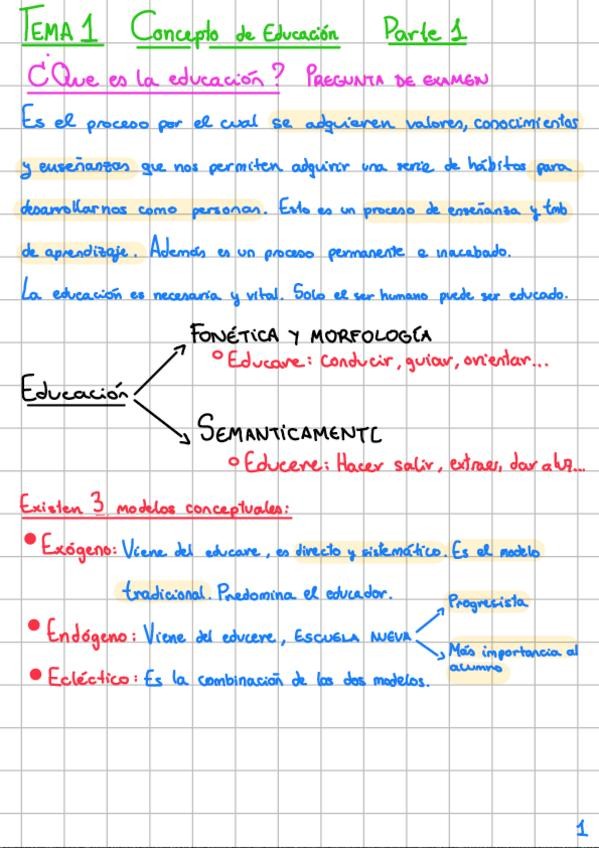 TEMA 1 Concepto de Educación Parte 1
¿Que es la educación? PREGUNTA DE EXAMEN
Es el proceso por el cual se adquieren valores, conocimientos
y enseñanzas que nos permiten adquirir una serie de hábitos para
desarrollarnos como personas. Esto es un proceso de enseñanza y tmb
de aprendizaje. Además es un proceso permanente e inacabado.
La educación es necesaria y vital. Solo el ser humano puede ser educado.
FONÉTICA Y MORFOLOGÍA
Educare: conducir, guiar, orientar...
Educación
SEMANTICAMENTE
Educere: Hacer salir, extraer, dar a luz...
Existen 3 modelos conceptuales:
Exógeno: Viene del educare, es directo y sistemático. Es el modelo
tradicional. Predomina el educador.
Progresista
Endógeno: Viene del educere, ESCUELA NUEVA
Más importancia al
alumno
Ecléctico: Es la combinación de los dos modelos.
1